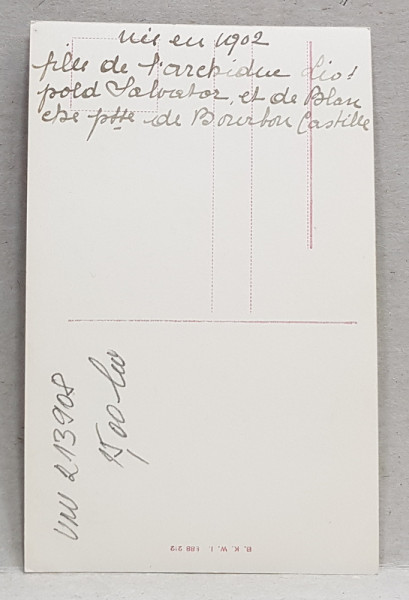 née en 1902
fille de l'archiduc Léo=
pold Salvator, et de Blan
che ptte de Bourbon Castille
VNV 213908
15,00 lei
B. K. W. I. 888 212